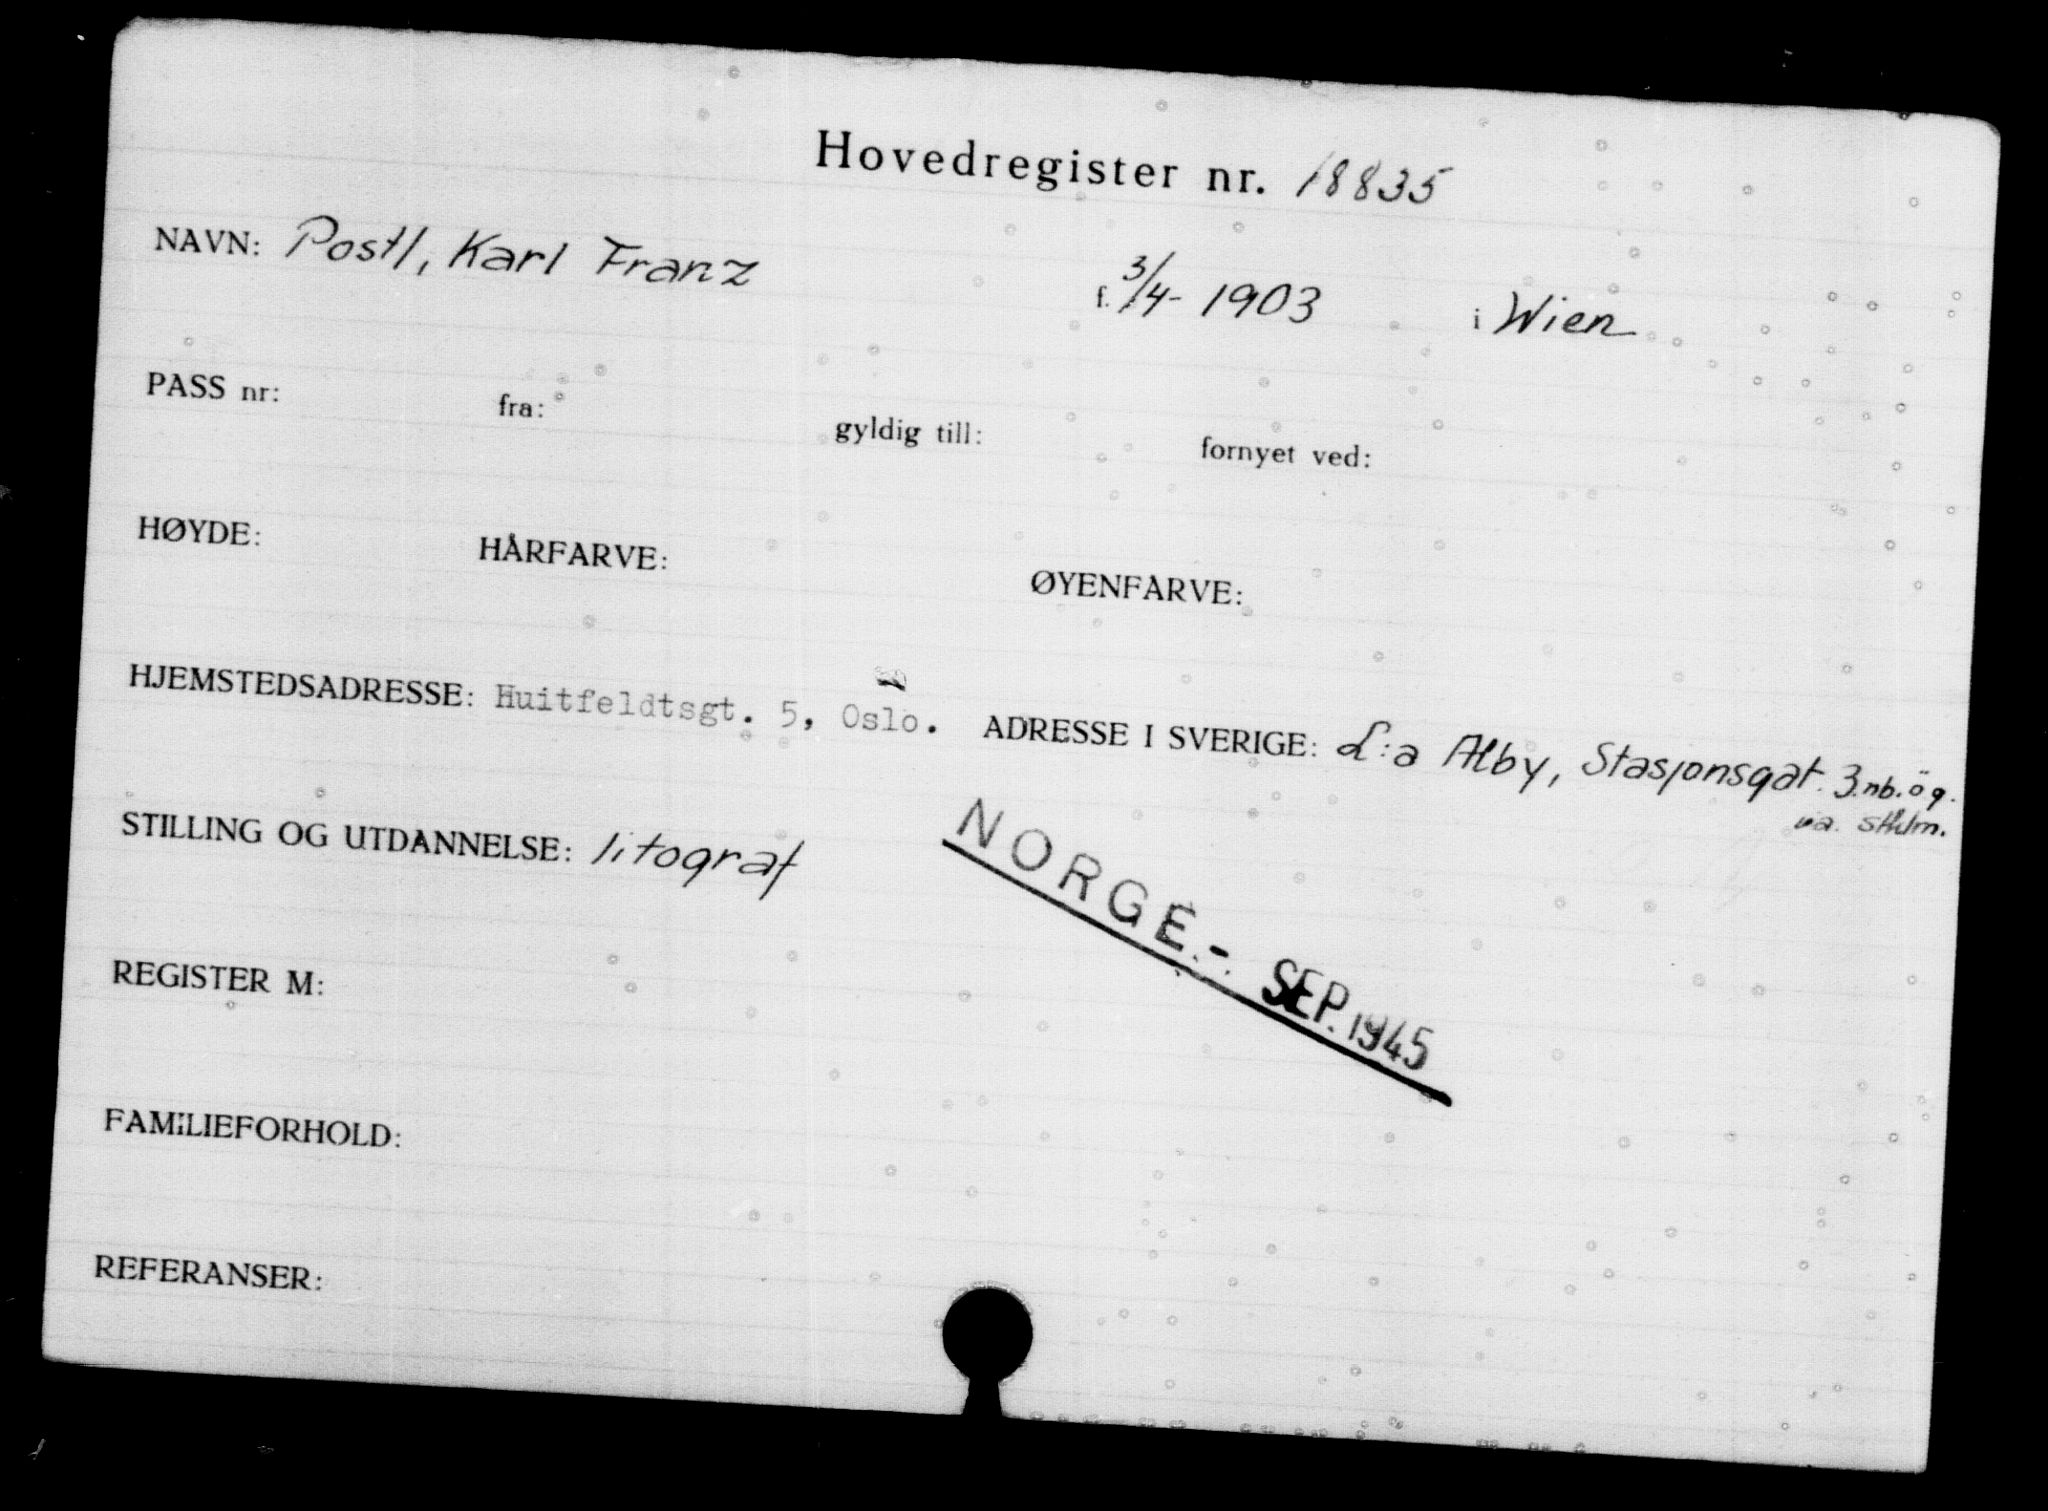 Hovedregister nr. 18835
NAVN: Postl, Karl Franz f. 3/4- 1903 i Wien
PASS nr: fra: gyldig till: fornyet ved:
HØYDE: HÅRFARVE: ØYENFARVE:
HJEMSTEDSADRESSE: Huitfeldtsgt. 5, Oslo. ADRESSE I SVERIGE: L:a Alby, Stasjonsgat. 3 nb. ög.
va. sthlm.
STILLING OG UTDANNELSE: litograf
NORGE.-. SEP. 1945
REGISTER M:
FAMILIEFORHOLD:
REFERANSER: